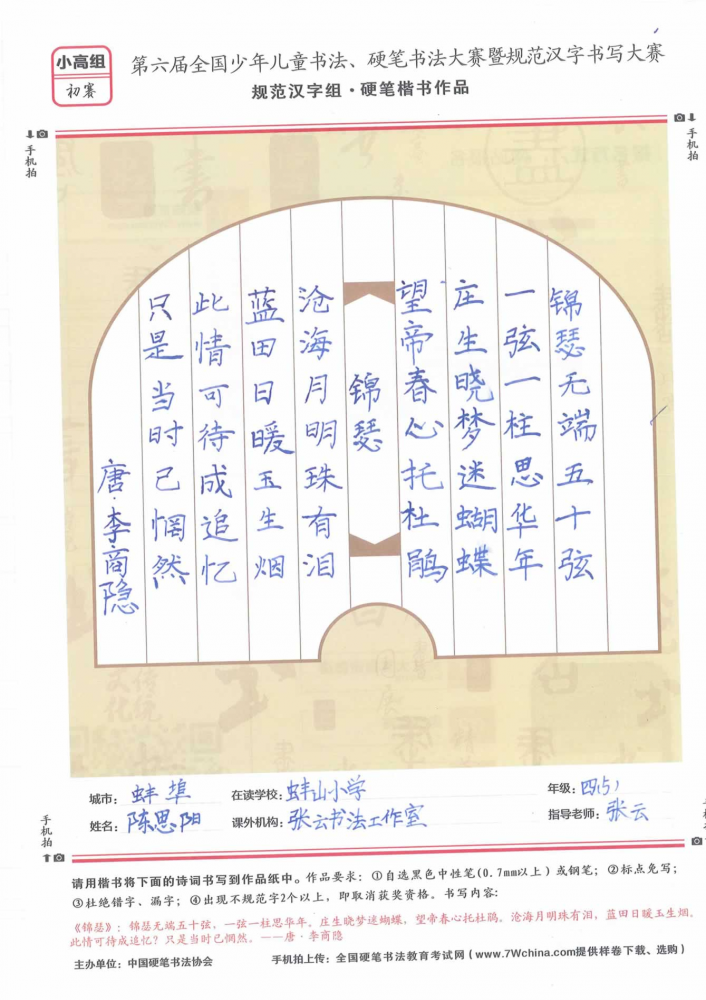 小高组
初赛
第六届全国少年儿童书法、硬笔书法大赛暨规范汉字书写大赛
规范汉字组·硬笔楷书作品
手机拍
手机拍
锦瑟无端五十弦
一弦一柱思华年
庄生晓梦迷蝴蝶
望帝春心托杜鹃
锦瑟
沧海月明珠有泪
蓝田日暖玉生烟
此情可待成追忆
只是当时已惘然
唐·李商隐
城市：蚌埠
在读学校：蚌山小学
年级：四(5)
姓名：陈思阳
课外机构：张云书法工作室
指导老师：张云
手机拍
请用楷书将下面的诗词书写到作品纸中。作品要求：①自选黑色中性笔(0.7mm以上)或钢笔；②标点免写；
③杜绝错字、漏字；④出现不规范字2个以上，即取消获奖资格。书写内容：
《锦瑟》：锦瑟无端五十弦，一弦一柱思华年。庄生晓梦迷蝴蝶，望帝春心托杜鹃。沧海月明珠有泪，蓝田日暖玉生烟。
此情可待成追忆？只是当时已惘然。——唐·李商隐
主办单位：中国硬笔书法协会
手机拍上传：全国硬笔书法教育考试网（www.7Wchina.com提供样卷下载、选购）